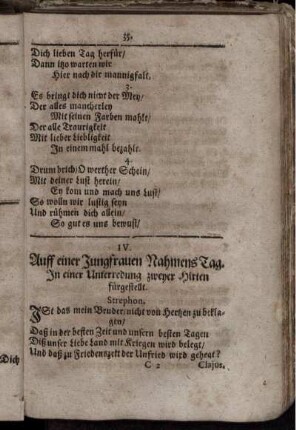 55.
Dich lieben Tag herfür/
Dann itzo warten wir
Hier nach dir mannigfalt.
3.
Es bringt dich nicht der Mey/
Der alles mancherley
Mit seinen Farben mahlt/
Der alle Traurigkeit
Mit lieber Liebligkeit
In einem mahl bezahlt.
4.
Drum brich: O werther Schein/
Mit deiner Lust herein/
Ey kom und mach uns Lust/
So wolln wir lustig seyn
Und rühmen dich allein/
So gut es uns bewust/
IV.
Auff einer Jungfrauen Nahmens Tag.
In einer Unterredung zweyer Hirten
fürgestellt.
Strephon.
IST das mein Bruder/nicht von Hertzen zu bekla-
gen/
Daß in der besten Zeit und unsern besten Tagen
Diß unser Liebe Land mit Kriegen wird belegt/
Und daß zu Friedenszeit der Unfried wird geheget?
C 2
Clajus.
Dich